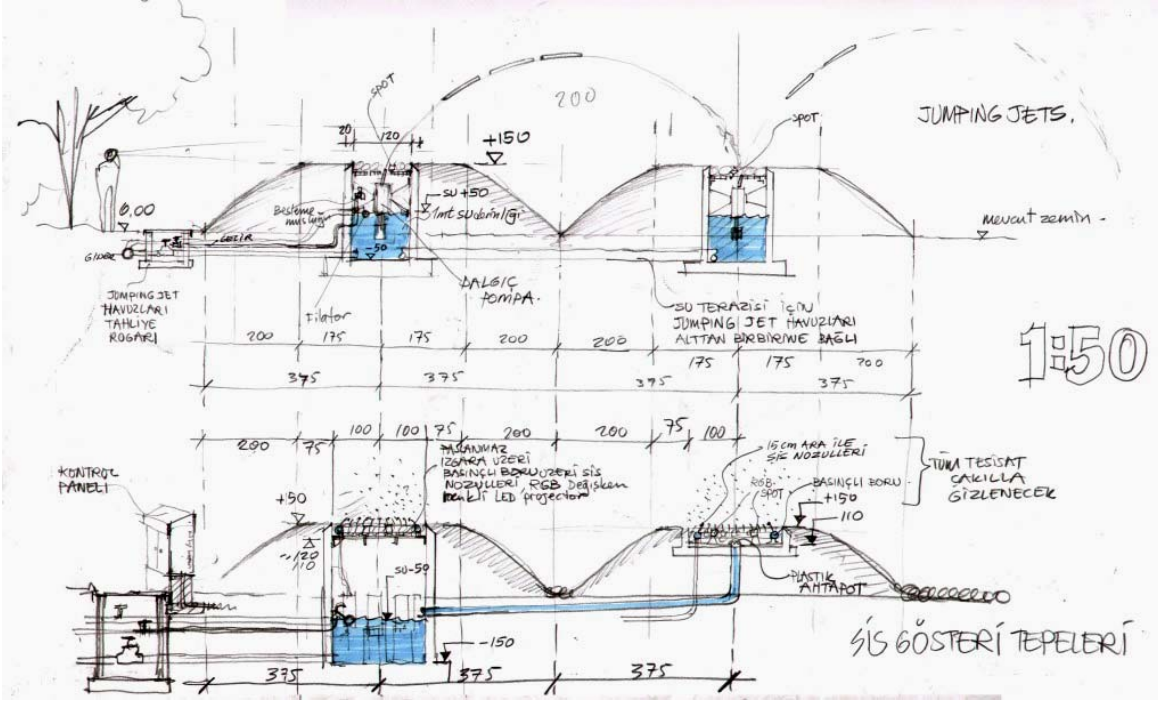 SPOT
200
JUMPING JETS.
20
120
+150
SPOT
SU +50
1mt su derinliği
Besleme
musluğu
0,00
mevcut zemin -
GİDER
-50
DALGIÇ
POMPA.
JUMPING JET
HAVUZLARI
TAHLİYE
ROGARI
Filatör
SU TERAZİSİ İÇİN
JUMPING JET HAVUZLARI
ALTTAN BİRBİRİNE BAĞLI
200
175
175
200
200
175
175
200
375
375
375
375
1:50
200
75
100
100
75
200
200
75
100
PASLANMAZ
IZGARA ÜZERİ
BASINÇLI BORU ÜZERİ SİS
NOZULLERİ, RGB Değişken
renkli LED projektör
15 cm ARA İLE
SİS NOZULLERİ
RGB
SPOT
BASINÇLI BORU
TÜM TESİSAT
ÇAKILLA
GİZLENECEK
KONTROL
PANELİ
+50
+150
110
120
110
SU-50
PLASTİK
AHTAPOT
-150
SİS GÖSTERİ TEPELERİ
375
375
375